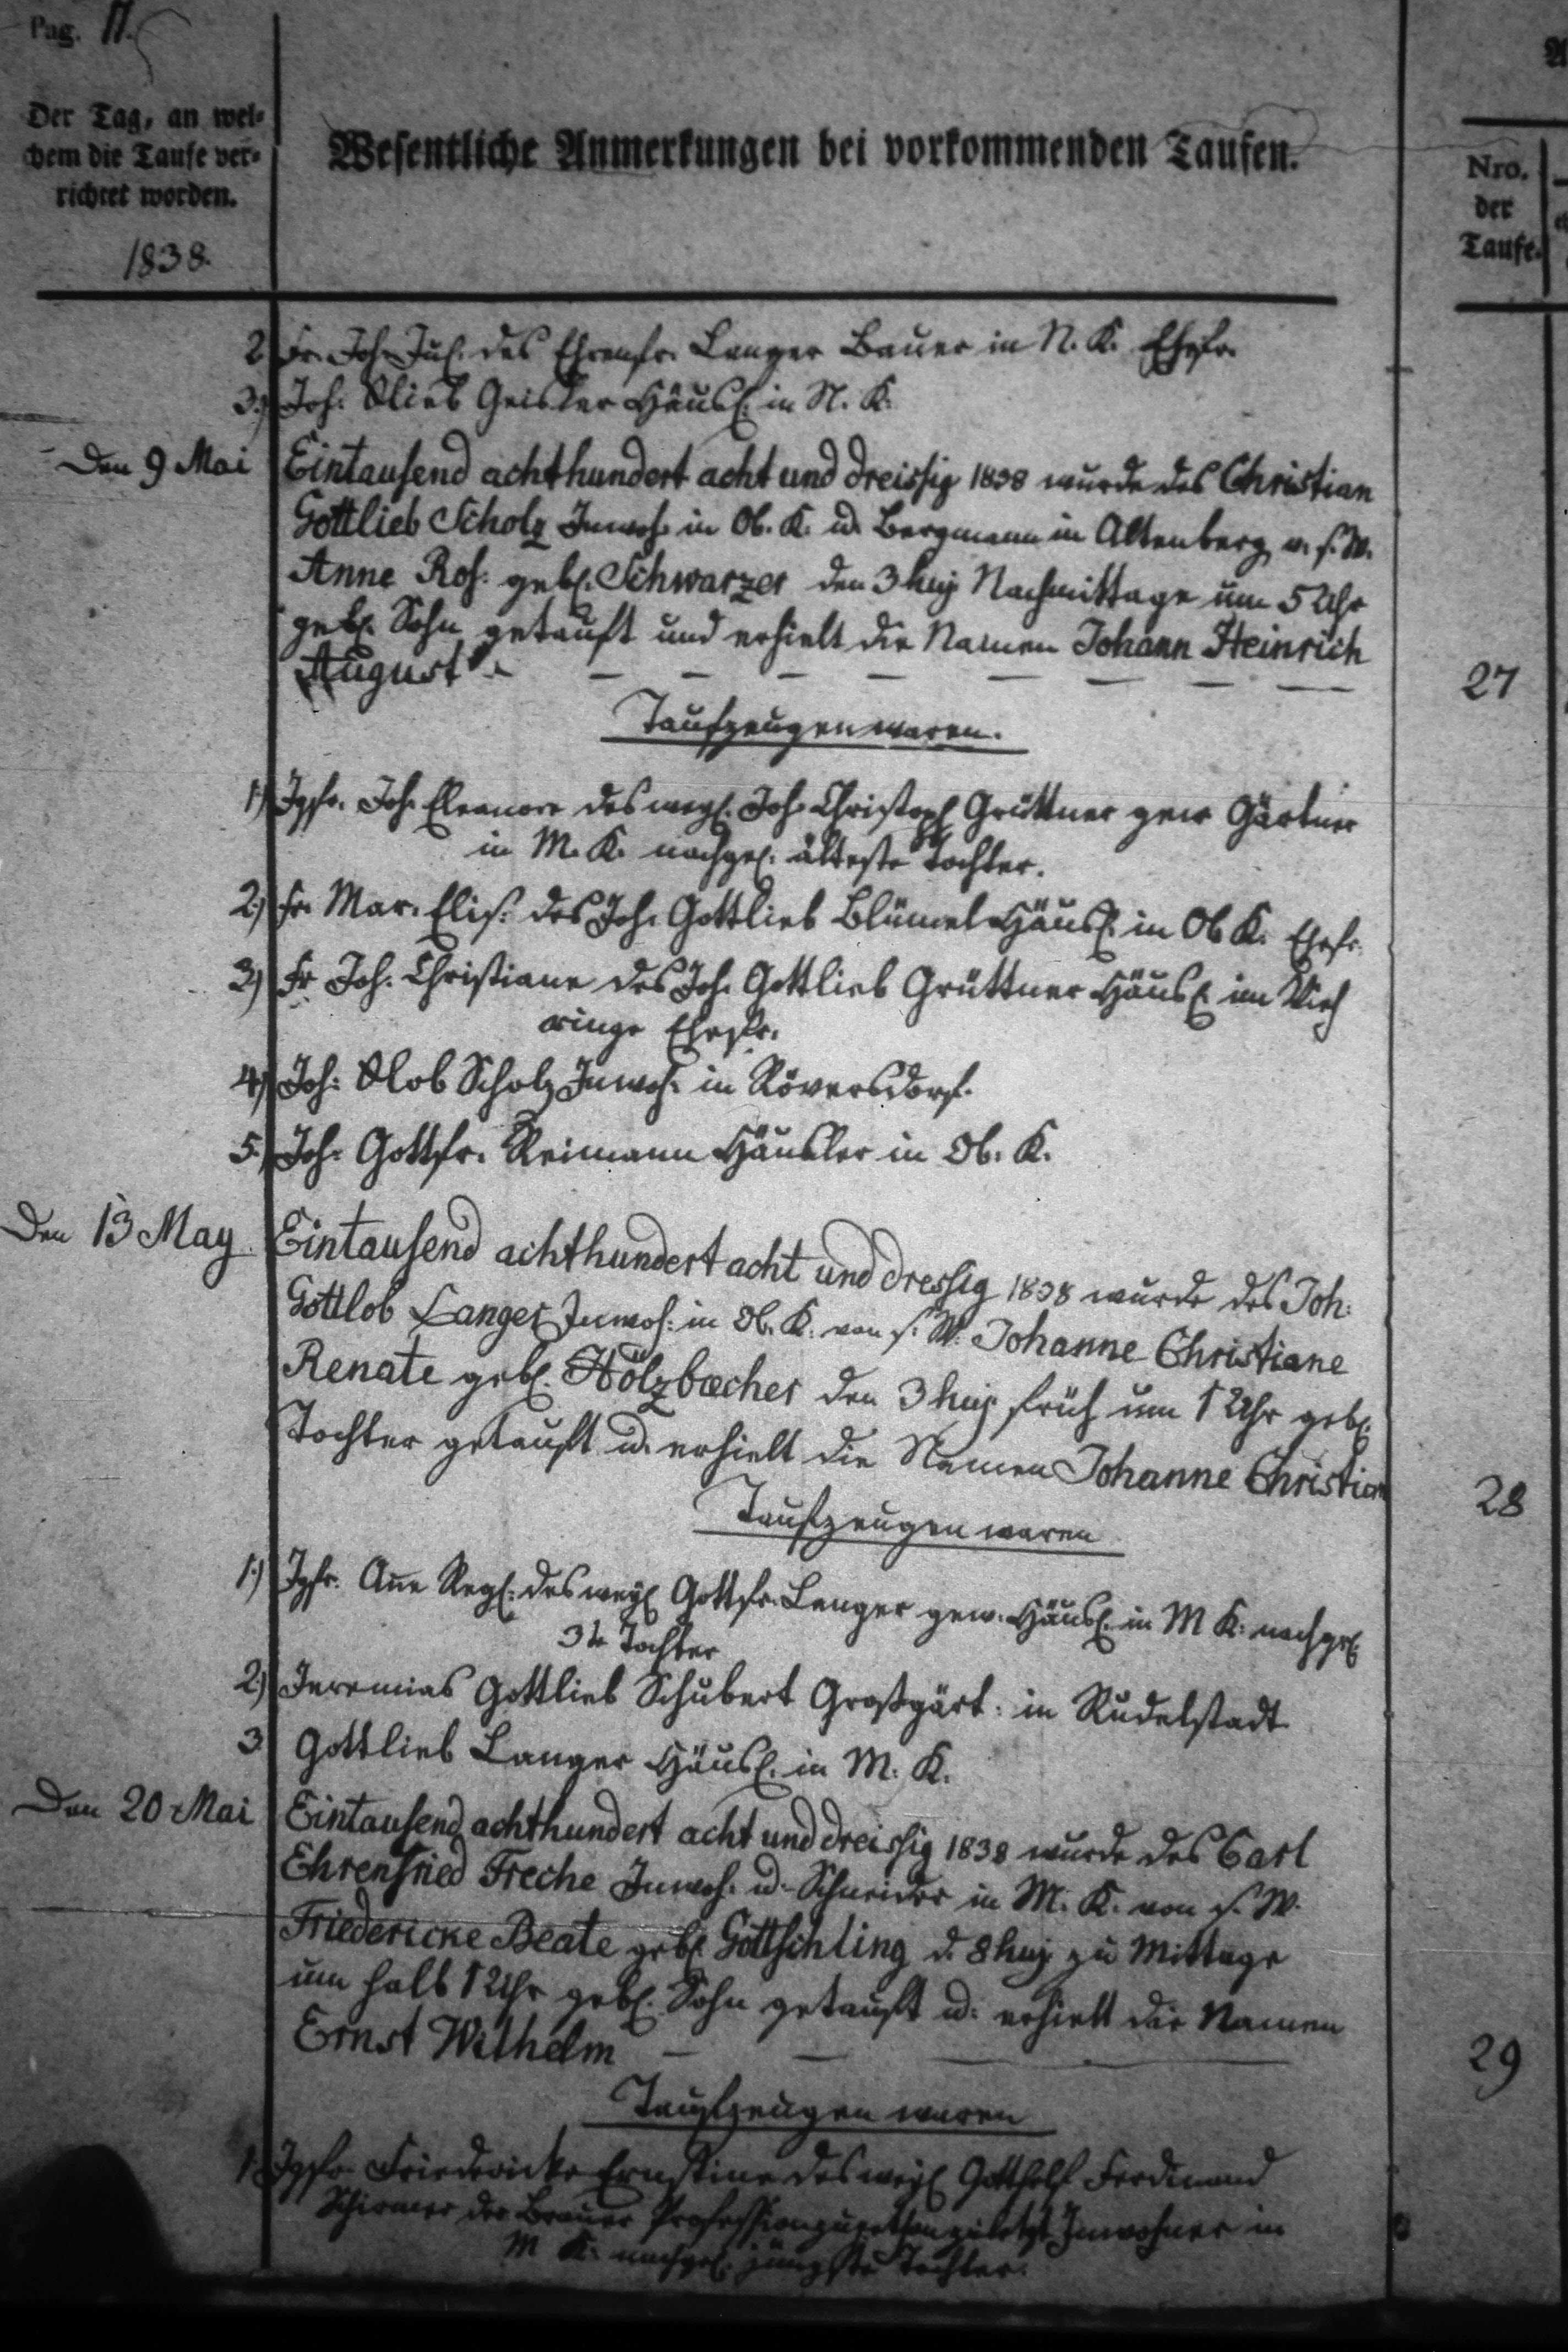 Pag. 11.
Der Tag, an wel-
chem die Taufe ver-
richtet worden.
1838.
Wesentliche Anmerkungen bei vorkommenden Taufen.
Nro.
der
Taufe.
2 Fr. Joh. Jul. des Ehrenfr. Langer Bauer in N. K. Ehefr.
3.) Joh: Glieb Geisler Häusl. in N. K.
Den 9 Mai Eintausend achthundert acht und dreissig 1838 wurde des Christian
Gottlieb Scholz Inwoh. in Ob. K. u. Bergmann in Altenberg v. s. W.
Anne Ros: gebl. Schwarzer den 3 huj Nachmittage um 5 Uhr
gebl. Sohn getauft und erhielt die Namen Johann Heinrich
August 27
Taufzeugen waren.
1.) Jgfr. Joh. Eleanore des weyl. Joh. Christoph Grüttner gew Gärtner
in M. K. nachgel. älteste Tochter.
2.) Fr. Mar. Elis: des Joh. Gottlieb Blümel Häusl. in Ob K. Ehefr.
3.) Fr Joh. Christiane des Joh. Gottlieb Grüttner Häusl. im Vieh
ringe Ehefr.
4.) Joh: Glob Scholz Inwoh. in Röversdorf.
5.) Joh. Gottfr. Reimann Häusler in Ob. K.
Den 13 May Eintausend achthundert acht und dressig 1838 wurde des Joh:
Gottlob Langer Inwoh: in Ob. K. von s. W. Johanne Christiane
Renate gebl. Hölzbecher den 3 huj früh um 1 Uhr gebl.
Tochter getauft u. erhielt die Namen Johanne Christian 28
Taufzeugen waren
1.) Jgfr. Ane Regl: des weyl Gottfr. Langer gew. Häusl. in M K: nachgel
3te Tochter
2.) Jeremias Gottlieb Schubert Großgärt: in Rudelstadt
3 Gottlieb Langer Häusl. in M: K.
Den 20 Mai Eintausend achthundert acht und dreissig 1838 wurde des Carl
Ehrenfried Freche Inwoh. u. Schneider in M. K. von s. W.
Friedericke Beate gebl Gottschling d. 8 huj zu Mittage
um halb 1 Uhr gebl. Sohn getauft u: erhielt die Namen
Ernst Wilhelm 29
Taufzeugen waren
1. Jgfr Friedericke Ernstine des weyl Gotthelf Ferdinand
Schirmer der Brauer Profession zuletzt Inwohner in
M K: nachgel. jüngste Tochter.